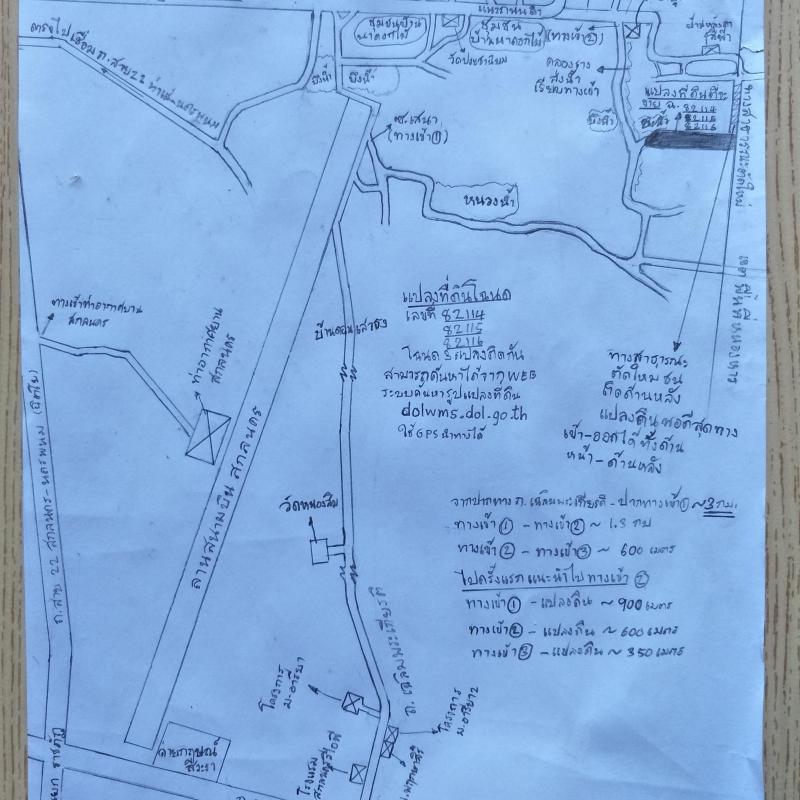 ตรงไปเชื่อม ถ.สาย 22 ท่าแร่-นครพนม
ชุมชนบ้าน
นาดอกไม้
ชุมชน
บ้านนาดอกไม้
(ทางเข้า ②)
วัดประชานิยม
คลองราง
ส่งน้ำ
เรียบทางเข้า
บึงน้ำ
บึงน้ำ
บึงน้ำ
แปลงที่ดินที่จะ
ขาย ฉ. 82114
82115
82116
ทางสาธารณะตัดใหม่
(ทางเข้า ①)
หนองน้ำ
ทางเข้าท่าอากาศยาน
สกลนคร
ท่าอากาศยาน
สกลนคร
ลานสนามบินสกลนคร
แปลงที่ดินโฉนด
เลขที่ 82114
82115
82116
โฉนด 3 แปลงติดกัน
สามารถค้นหาได้จาก WEB
ระบบค้นหารูปแปลงที่ดิน
dolwms.dol.go.th
ใช้ GPS นำทางได้
ทางสาธารณะ
ตัดใหม่ ชน
ติดด้านหลัง
แปลงดิน พอดีสุดทาง
เข้า-ออกได้ทั้งด้าน
หน้า-ด้านหลัง
จากปากทาง ถ.เฉลิมพระเกียรติ - ปากทางเข้า ① ~ 3 กม.
ทางเข้า ① - ทางเข้า ② ~ 1.3 กม
ทางเข้า ② - ทางเข้า ③ ~ 600 เมตร
ไปครั้งแรกแนะนำไปทางเข้า ②
ทางเข้า ① - แปลงดิน ~ 900 เมตร
ทางเข้า ② - แปลงดิน ~ 600 เมตร
ทางเข้า ③ - แปลงดิน ~ 350 เมตร
ถ.สาย 22 สกลนคร-นครพนม
ถ.เฉลิมพระเกียรติ
โครงการ
ม.อารียา
โครงการ
ม.อารียา 2
ค่ายกฤษณ์
สีวะรา
โรงแรม